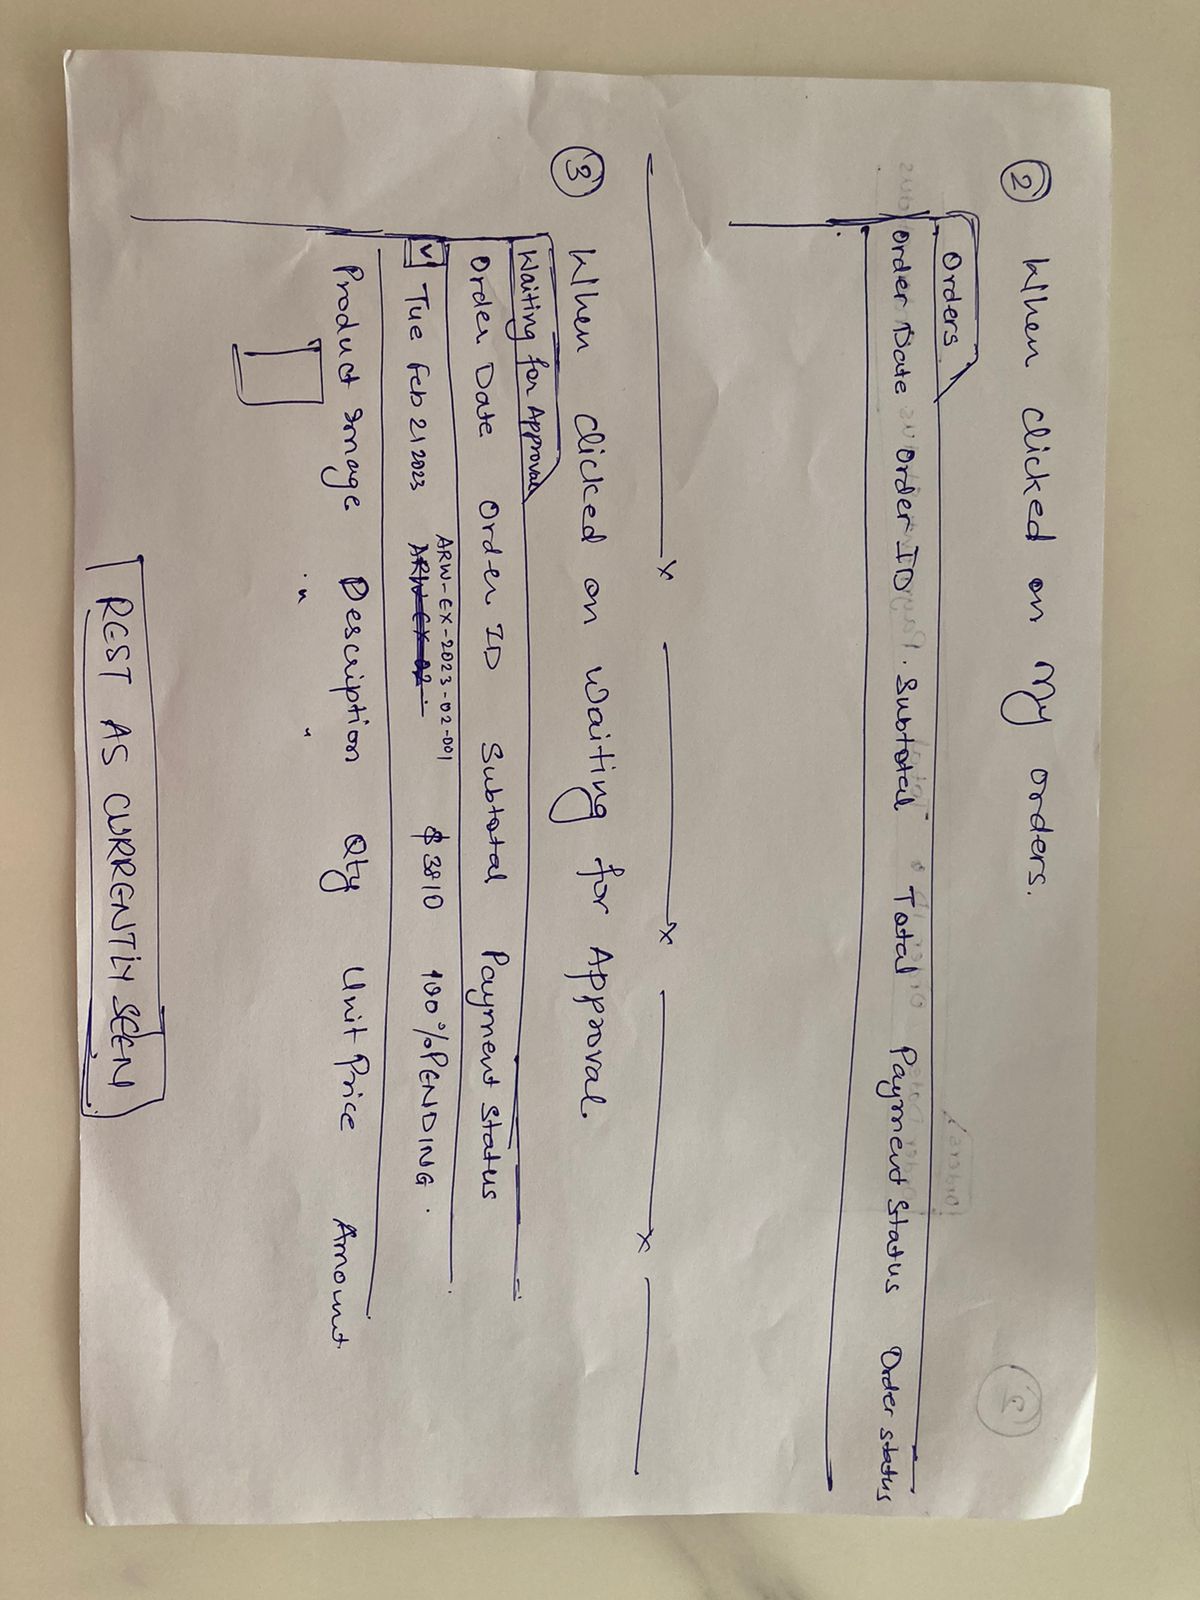 ② When clicked on My orders.
Orders
Order Date Order ID. Subtotal Total Payment Status Order status
x x x
③ When clicked on Waiting for Approval.
Waiting for Approval
Order Date Order ID Subtotal Payment Status
Tue Feb 21 2023 ARW-EX-2023-02-001 $3810 100% PENDING.
Product Image Description Qty Unit Price Amount
REST AS CURRENTLY SEEN